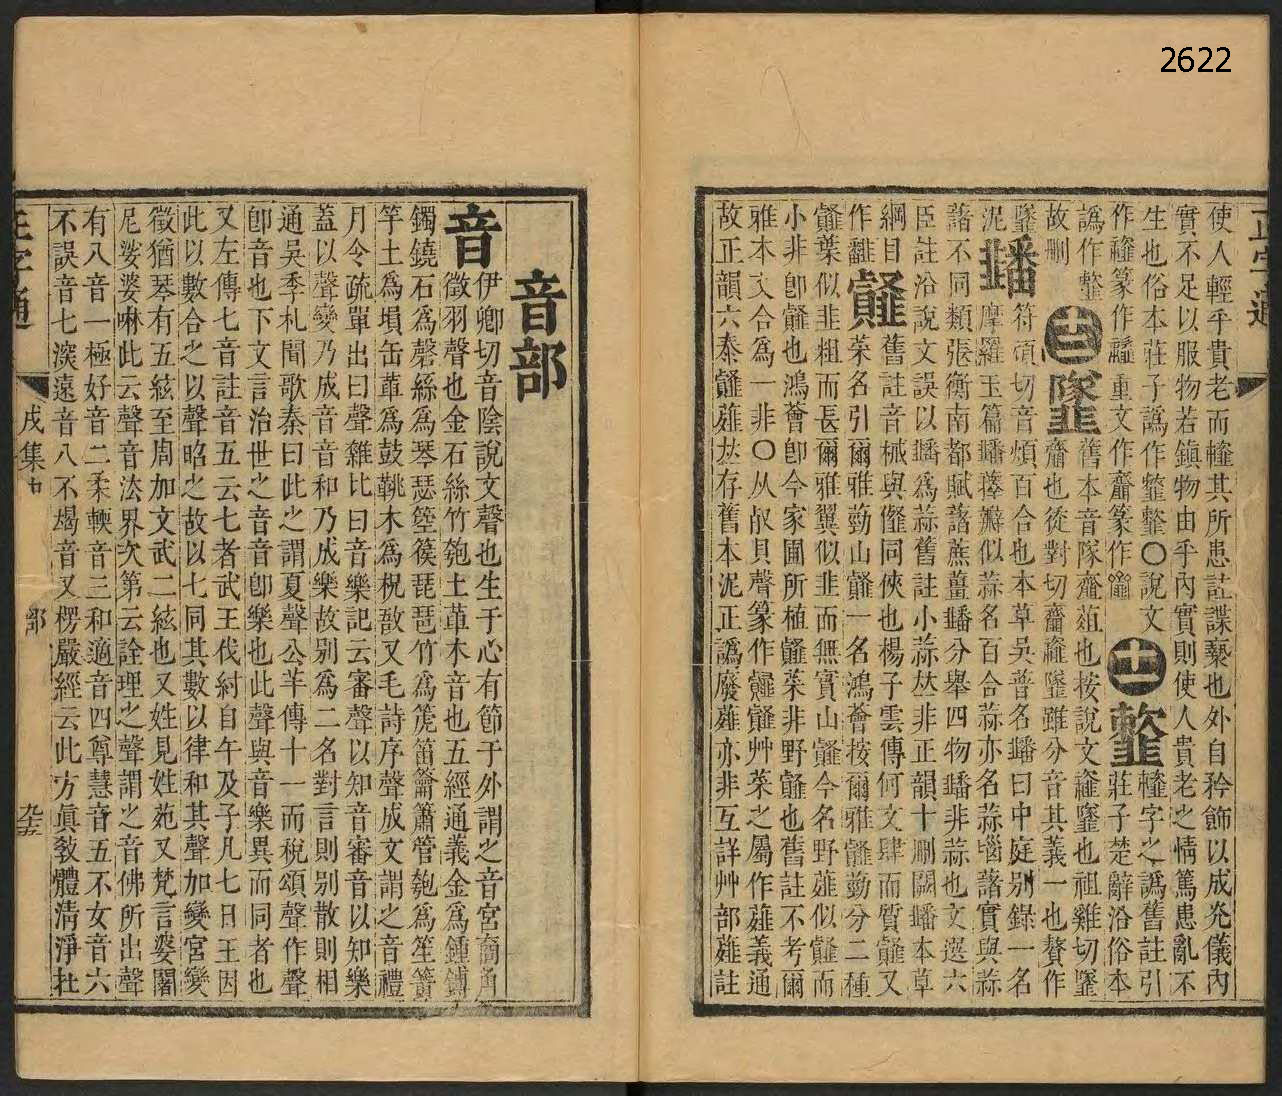 2622
正字通
使人輕乎貴老而䪡其所患註諜䙝也外自矜飾以成光儀內
實不足以服物若鎭物由乎內實則使人貴老之情篤患亂不
生也俗本莊子譌作䪡〇說文
作篆作重文作齏篆作 十一 䪡字之譌舊註引
譌作 莊子楚辭沿俗本
故刪 十二 舊本音隊齏葅也按說文也祖雞切
齏也徒對切齏雖分音其義一也贅作
䪤 符頑切音煩百合也本草吳普名䪤曰中庭別錄一名
泥摩羅玉篇䪤瓣似蒜名百合蒜亦名蒜腦藷實與蒜
藷不同類張衡南都賦藷蔗薑䪤分舉四物䪤非蒜也文選六
臣註沿說文誤以䪤爲蒜舊註小蒜𠀤非正韻十刪闕䪤本草
綱目 䪥 舊註音械與㒠同俠也楊子雲傳何文肆而質䪥又
作 菜名引爾雅葝山䪥一名鴻薈按爾雅䪥葝分二種
䪥葉似韭粗而長爾雅翼似韭而無實山䪥今名野薤似䪥而
小非卽䪥也鴻薈卽今家圃所植䪥菜非野䪥也舊註不考爾
雅本文合為一非〇从㕡貝聲篆作䪥䪥艸菜之屬作薤義通
故正韻六泰䪥薤𠀤存舊本泥正譌廢薤亦非互詳艸部薤註
音部
音 伊卿切音陰說文聲也生于心有節于外謂之音宮商角
徵羽聲也金石絲竹匏土革木音也五經通義金爲鍾鎛
鐲鐃石爲磬絲爲琴瑟箜篌琵琶竹爲箎笛籥簫管匏爲笙簧
竽土爲塤缶革爲鼓鞉木爲柷敔又毛詩序聲成文謂之音禮
月令疏單出曰聲雜比曰音樂記云審聲以知音審音以知樂
蓋以聲變乃成音音和乃成樂故別爲二名對言則別散則相
通吳季札聞歌秦曰此之謂夏聲公羊傳十一而稅頌聲作聲
卽音也下文言治世之音音卽樂也此聲與音樂異而同者也
又左傳七音註音五云七者武王伐紂自午及子凡七日王因
此以數合之以聲昭之故以七同其數以律和其聲加變宮變
徵猶琴有五絃至周加文武二絃也又姓見姓苑又梵言婆闍
尼娑婆啉此云聲音法界次第云詮理之聲謂之音佛所出聲
有八音一極好音二柔輭音三和適音四尊慧音五不女音六
不誤音七深遠音八不竭音又楞嚴經云此方眞敎體淸淨在
正字通
戌集中
部
九十五